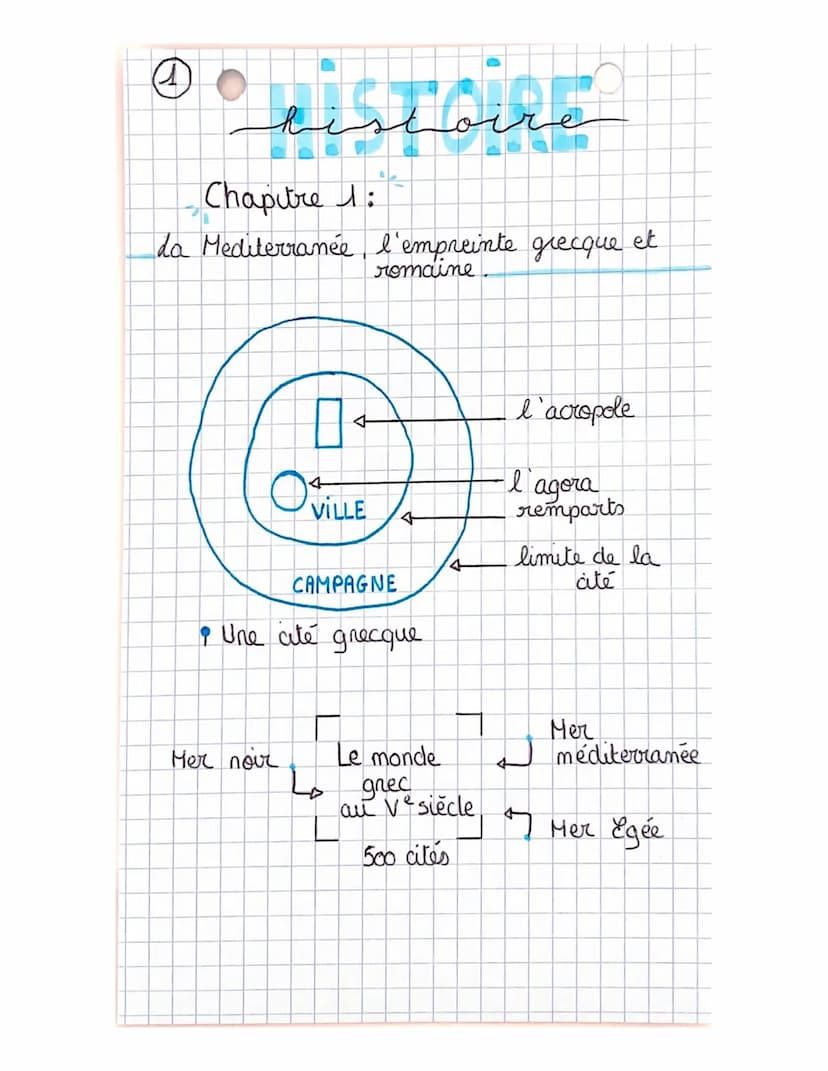 1
HISTOIRE
histoire
Chapitre 1 :
La Mediterranée, l'empreinte grecque et
romaine.
l'acropole
l'agora
VILLE
remparts
limite de la
cité
CAMPAGNE
Une cité grecque
Mer noir
Le monde
grec
au Ve siècle
500 cités
Mer
méditerranée
Mer Egée